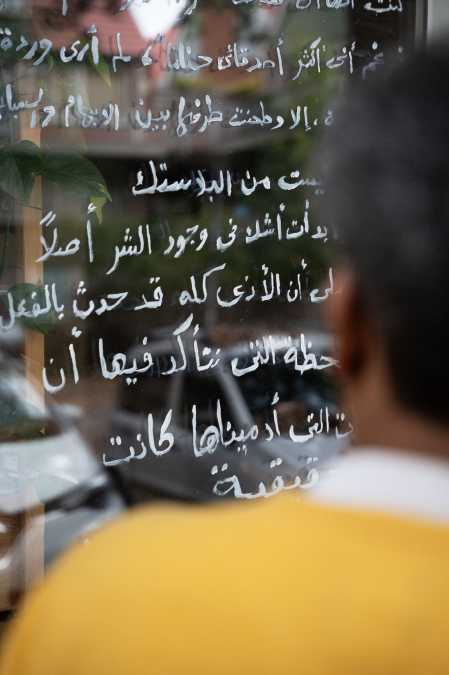 كنت
رغم أني أكثر أصدقائي حنانا، لم أرى وردة
، إلا وطحنت طرفها بين الإبهام والسبابة
ليست من البلاستك
بدأت أشك في وجود الشر أصلًا
أن الأذى كله قد حدث بالفعل
لحظة التي نتأكد فيها أن
التي أدميناها كانت
حقيقية